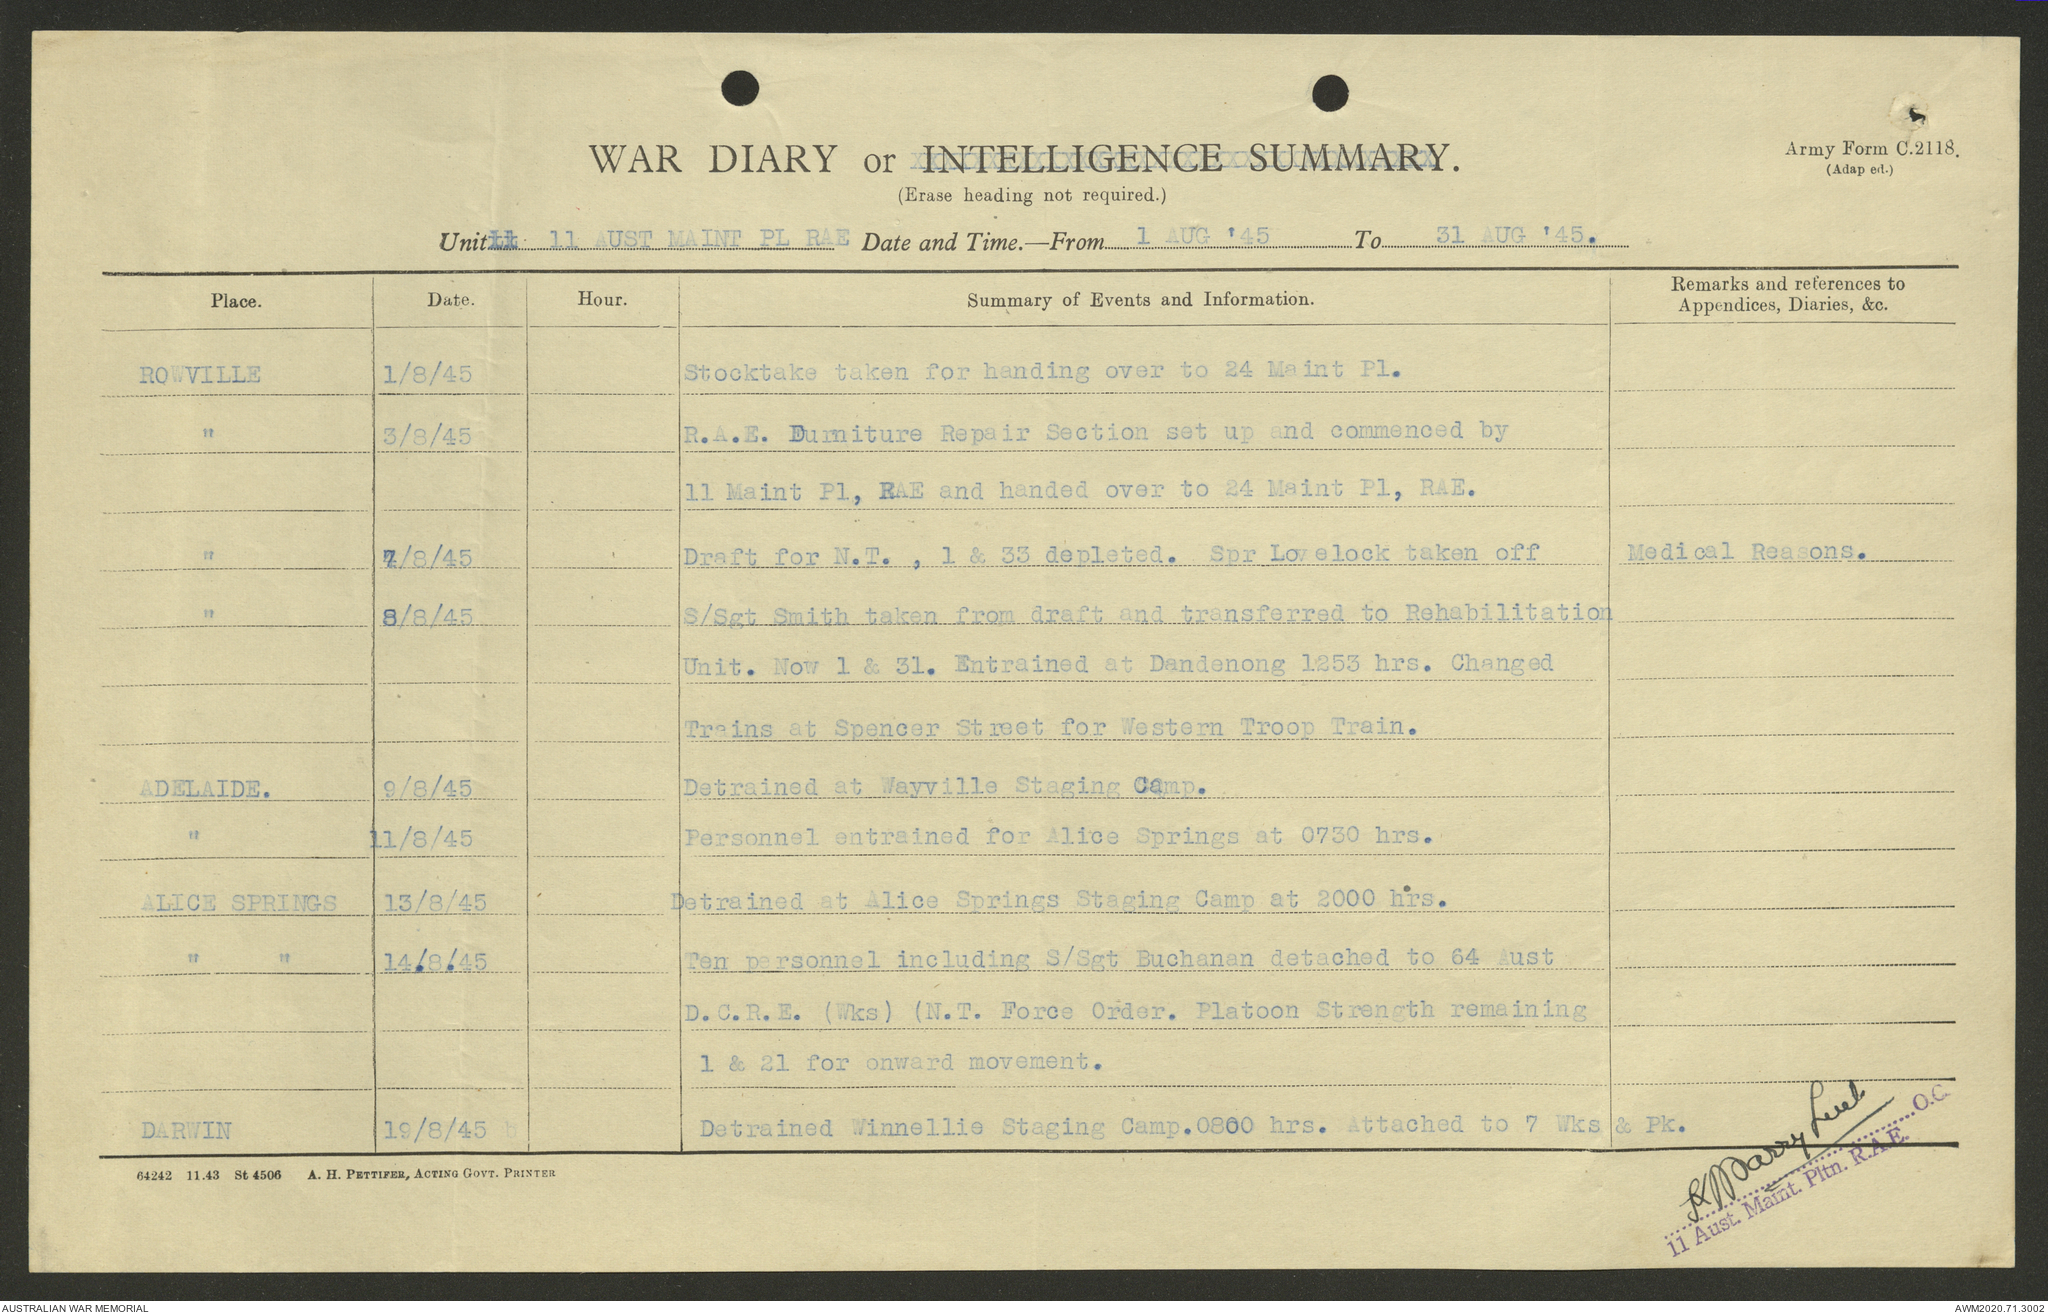 WAR DIARY or INTELLIGENCE SUMMARY.
Army Form C.2118.
(Adapted.)
(Erase heading not required.)
Unit 11 AUST MAINT PL RAE Date and Time.—From 1 AUG '45 To 31 AUG '45.
Place. Date. Hour. Summary of Events and Information. Remarks and references to Appendices, Diaries, &c.
ROWVILLE 1/8/45 Stocktake taken for handing over to 24 Maint Pl.
" 3/8/45 R.A.E. Furniture Repair Section set up and commenced by
11 Maint Pl, RAE and handed over to 24 Maint Pl, RAE.
" 7/8/45 Draft for N.T. , 1 & 33 depleted. Spr Lovelock taken off Medical Reasons.
" 8/8/45 S/Sgt Smith taken from draft and transferred to Rehabilitation
Unit. Now 1 & 31. Entrained at Dandenong 1253 hrs. Changed
Trains at Spencer Street for Western Troop Train.
ADELAIDE. 9/8/45 Detrained at Wayville Staging Camp.
" 11/8/45 Personnel entrained for Alice Springs at 0730 hrs.
ALICE SPRINGS 13/8/45 Detrained at Alice Springs Staging Camp at 2000 hrs.
" " 14/8/45 Ten personnel including S/Sgt Buchanan detached to 64 Aust
D.C.R.E. (Wks) (N.T. Force Order. Platoon Strength remaining
1 & 21 for onward movement.
DARWIN 19/8/45 Detrained Winnellie Staging Camp.0800 hrs. Attached to 7 Wks & Pk.
Lieut
O.C.
11 Aust. Maint. Pltn. R.A.E.
64242 11.43 St 4506 A. H. PETTIFER, ACTING GOVT. PRINTER
AUSTRALIAN WAR MEMORIAL
AWM2020.71.3002